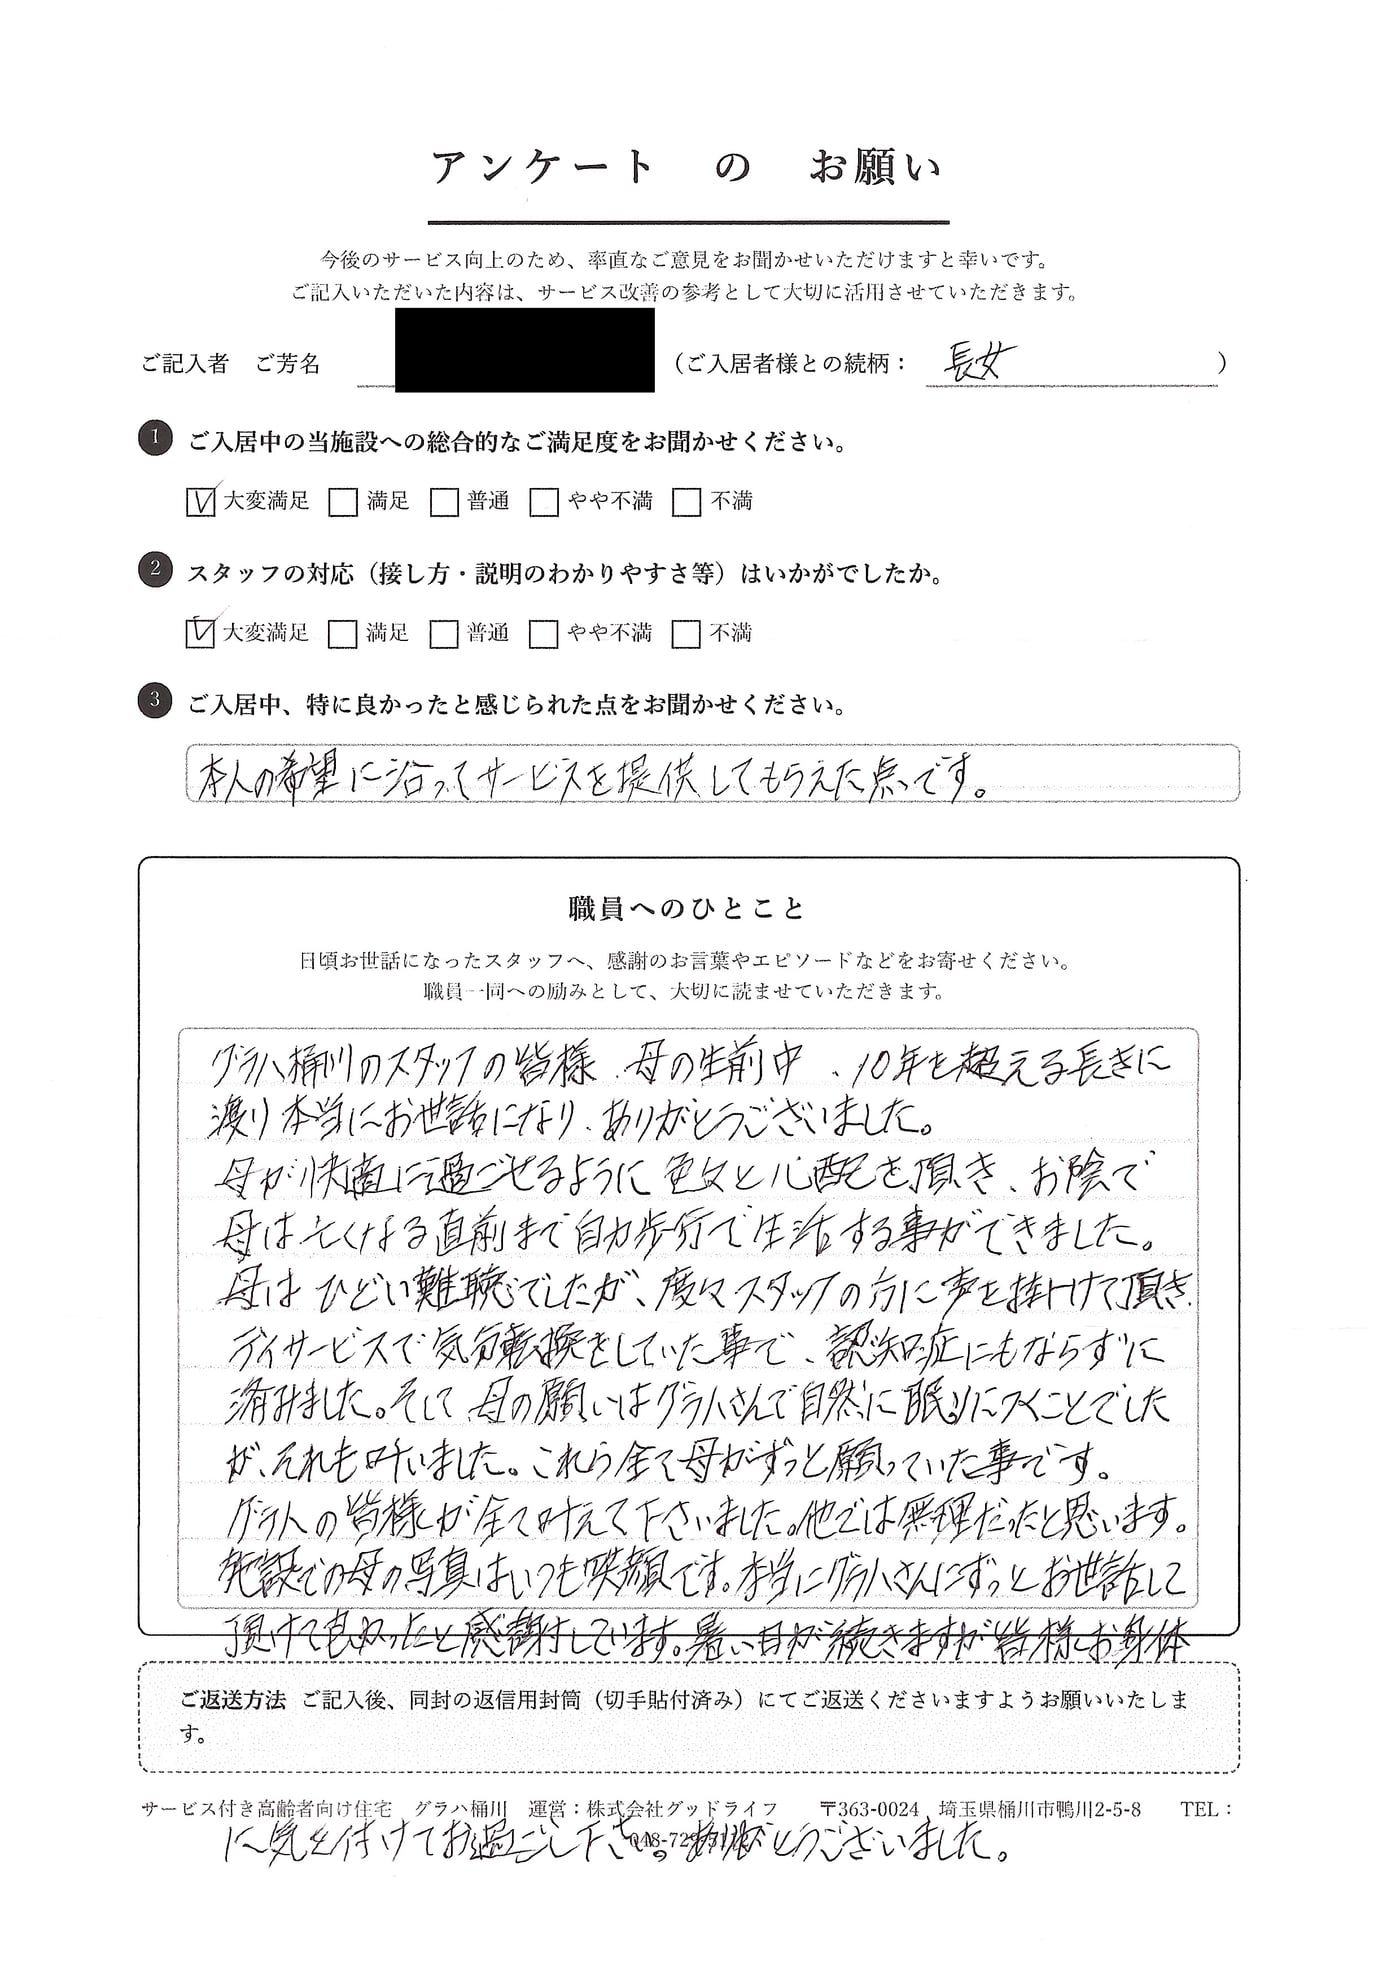 アンケート の お願い
今後のサービス向上のため、率直なご意見をお聞かせいただけますと幸いです。
ご記入いただいた内容は、サービス改善の参考として大切に活用させていただきます。
ご記入者 ご芳名 (ご入居者様との続柄： 長女 )
1 ご入居中の当施設への総合的なご満足度をお聞かせください。
☑大変満足 □満足 □普通 □やや不満 □不満
2 スタッフの対応（接し方・説明のわかりやすさ等）はいかがでしたか。
☑大変満足 □満足 □普通 □やや不満 □不満
3 ご入居中、特に良かったと感じられた点をお聞かせください。
本人の希望に沿ってサービスを提供してもらえた点です。
職員へのひとこと
日頃お世話になったスタッフへ、感謝のお言葉やエピソードなどをお寄せください。
職員一同への励みとして、大切に読ませていただきます。
グラハ桶川のスタッフの皆様、母の生前中、10年を超える長きに
渡り本当にお世話になり、ありがとうございました。
母が快適に過ごせるように色々と心配を頂き、お陰で
母は亡くなる直前まで自力歩行で生活する事ができました。
母はひどい難聴でしたが、度々スタッフの方に声を掛けて頂き、
デイサービスで気分転換をしていた事で、認知症にもならずに
済みました。そして、母の願いはグラハさんで自然に眠りにつくことでした
が、それも叶いました。これら全て母がずっと願っていた事です。
グラハの皆様が全て叶えて下さいました。他では無理だったと思います。
施設での母の写真はいつも笑顔です。本当にグラハさんにずっとお世話して
頂けて良かったと感謝しています。暑い日が続きますが皆様お身体
ご返送方法 ご記入後、同封の返信用封筒（切手貼付済み）にてご返送くださいますようお願いいたしま
す。
サービス付き高齢者向け住宅 グラハ桶川 運営：株式会社グッドライフ 〒363-0024 埼玉県桶川市鴨川2-5-8 TEL：
に気を付けてお過ごし下さい。ありがとうございました。